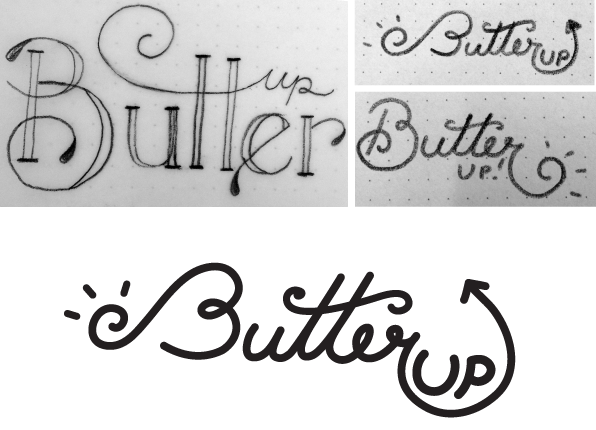 Butter up
Butter UP
Butter
UP!
Butter UP